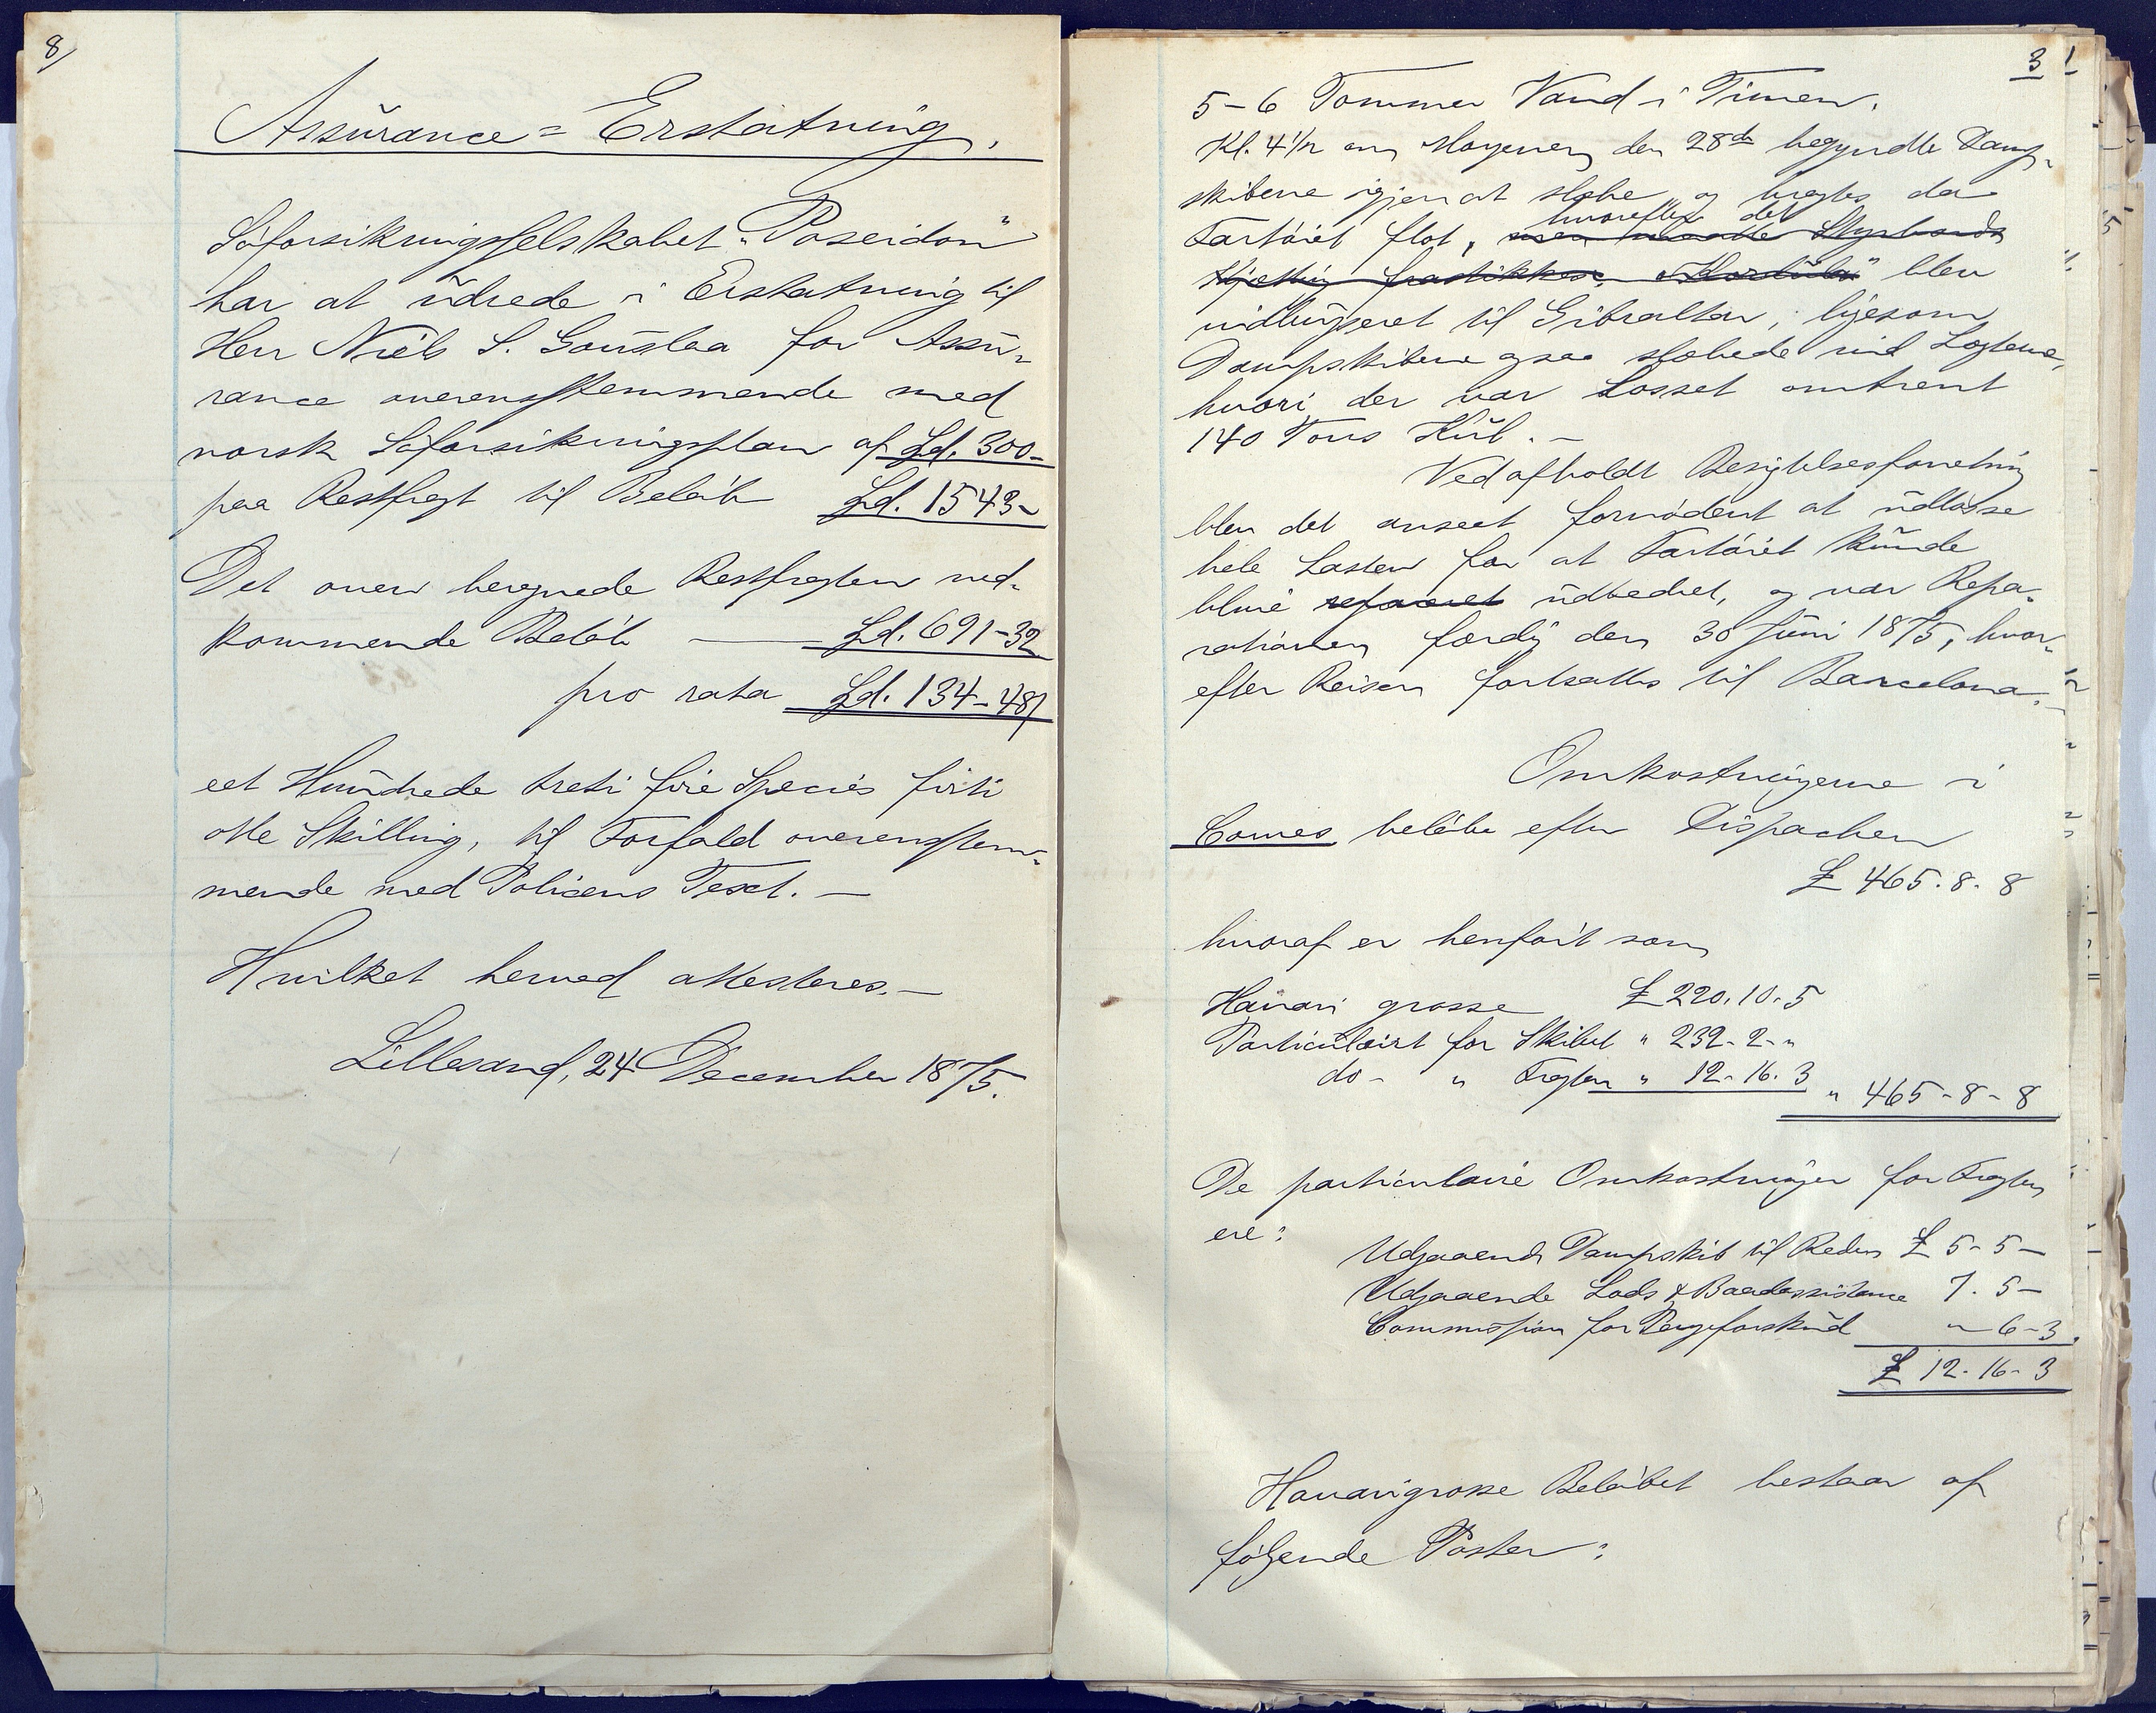 8/
Assurance = Erstatning.
Søforsikringsselskabet "Poseidon"
har at udrede i Erstatning til
Herr Niels S. Gauslaa for Assu-
rance overensstemmende med
norsk Søforsikringsplan af Spd. 300-
paa Restfragt til Beløb Spd. 1543-
Det oven beregnede Restfragten ved-
kommende Beløb — Spd. 691-32
pro rata Spd. 134-48/
eet Hundrede treti fire Species firti
otte Skilling, til Forfald overensstem-
mende med Policens Text. —
Hvilket herved attesteres. —
Lillesand, 24 December 1875.
3
5-6 Tommer Vand i Timen.
Kl. 4 1/2 om Morgenen den 28de begyndte Damp-
skibene igjen at slæbe og bragtes da
hvorefter det
Fartøiet flot, men maatte Styrbords
Kjætting frastikkes. "Kordula" blev
indbugseret til Gibraltar, ligesom
Dampskibene ogsaa slæbede ind Lægterne,
hvori der var Losset omtrent
140 Tons Kul. —
Ved afholdt Besigtelsesforretning
blev det anseet fornødent at udlosse
hele Lasten for at Fartøiet kunde
blive repareret udbedret, og var Repa-
rationen færdig den 30 Juni 1875, hvor-
efter Reisen fortsattes til Barcelona.
Omkostningerne i
Cowes beløbe efter Dispachen
£ 465.8.8
hvoraf er henført som
Havari grosse £ 220.10.5
Particulairt for Skibet " 232-2-"
do- " Fragten " 12-16.3
" 465-8-8
De particulaire Omkostninger for Fragten
ere:
Udgaaende Dampskib til Reden £ 5-5-
Udgaaende Lods & Baadassistance 7.5-
Commission for Pengeforskud "-6-3
£ 12-16-3
Havarigrosse Beløbet bestaar af
følgende Poster: